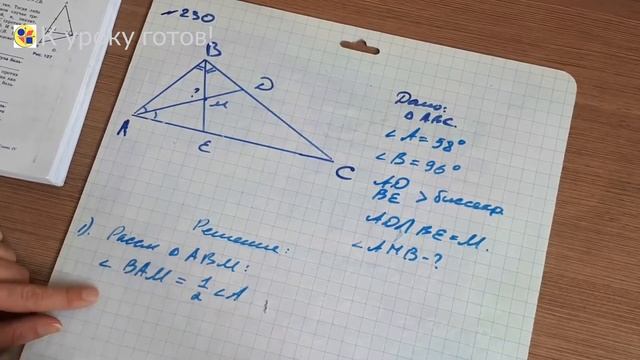 К уроку готов!
№230
B
?
D
M
A
E
C
Дано:
△ABC.
∠A=58°
∠B=96°
AD
BE > биссекр
AD∩BE=M.
∠AMB-?
Решение:
1). Рассм △ABM:
∠BAM = 1/2 ∠A
Рис. 127